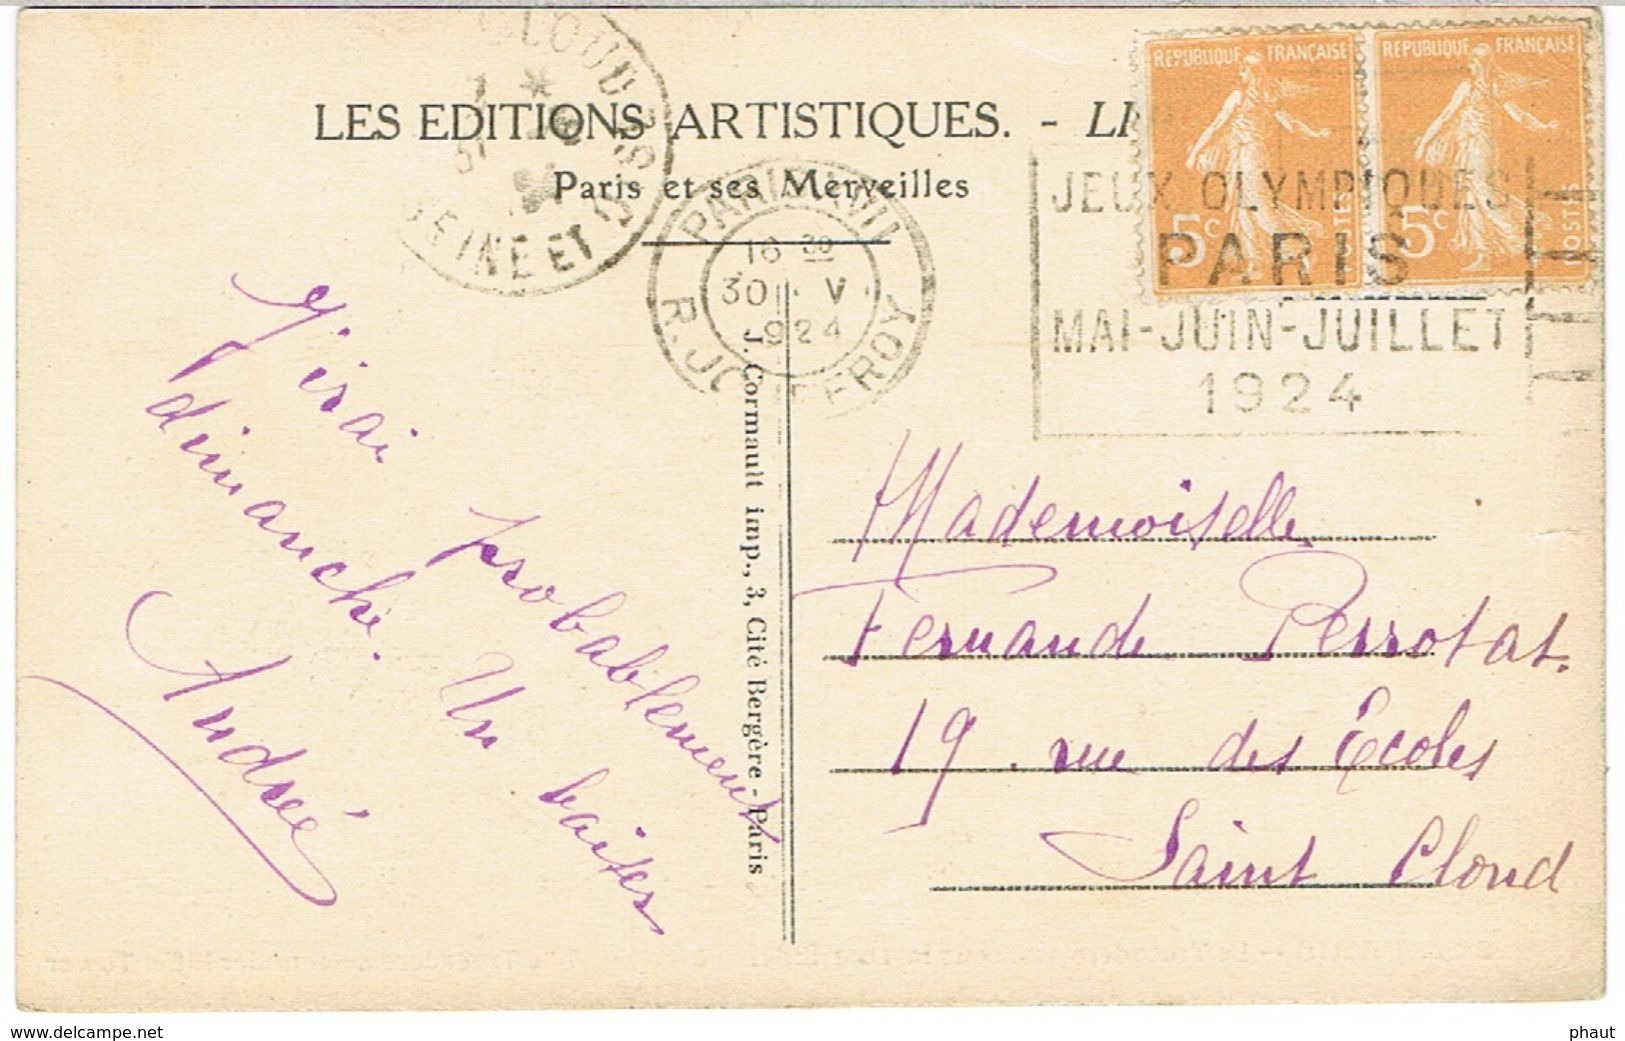 LES EDITIONS ARTISTIQUES. - L
Paris et ses Merveilles
CLOUD
SEINE ET
PARIS XVII
R. JOUFFROY
16 30
30 V
1924
REPUBLIQUE FRANÇAISE
5c
POSTES
REPUBLIQUE FRANÇAISE
5c
POSTES
JEUX OLYMPIQUES
PARIS
MAI-JUIN-JUILLET
1924
J'irai probablement
dimanche. Un baiser
Andrée
J. Cormault imp., 3, Cité Bergère - Paris
Mademoiselle
Fernande Perrotat.
19. rue des Ecoles
Saint Cloud
delcampe.net
phaut